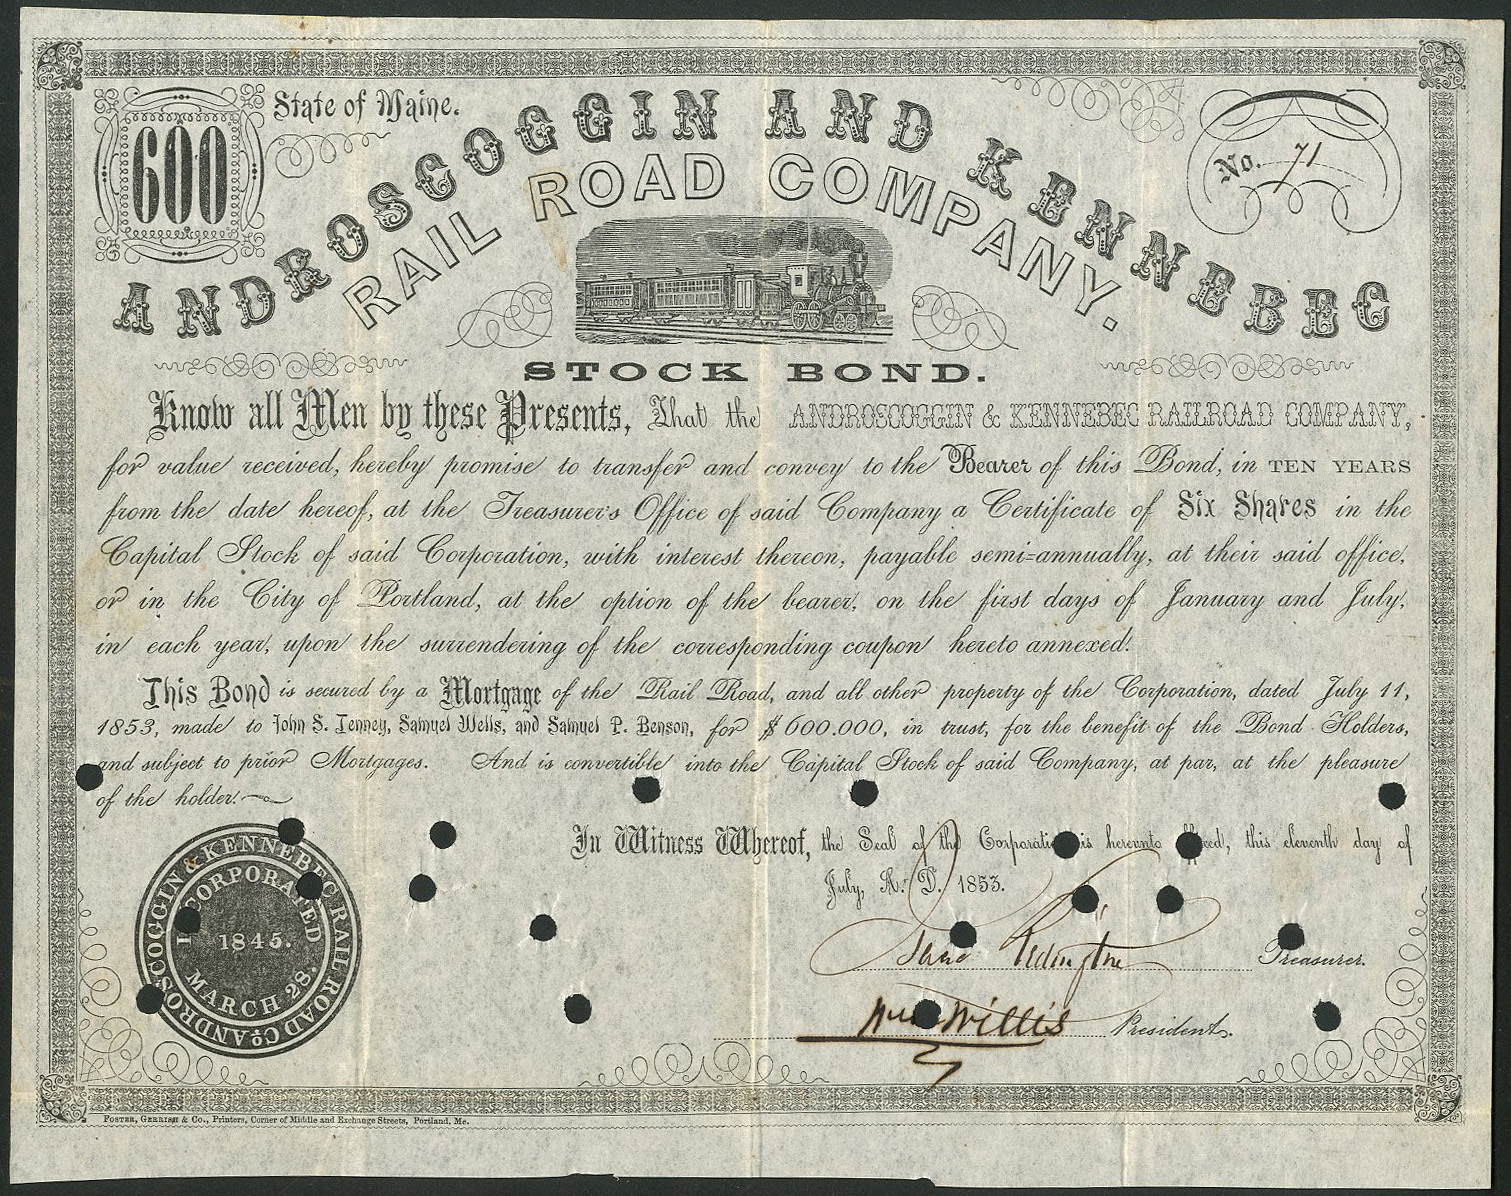 600
State of Maine.
No. 71
ANDROSCOGGIN AND KENNEBEC
RAIL ROAD COMPANY.
STOCK BOND.
Know all Men by these Presents, That the ANDROSCOGGIN & KENNEBEC RAILROAD COMPANY,
for value received, hereby promise to transfer and convey to the Bearer of this Bond, in TEN YEARS
from the date hereof, at the Treasurer's Office of said Company a Certificate of Six Shares in the
Capital Stock of said Corporation, with interest thereon, payable semi=annually, at their said office,
or in the City of Portland, at the option of the bearer, on the first days of January and July,
in each year, upon the surrendering of the corresponding coupon hereto annexed.
This Bond is secured by a Mortgage of the Rail Road, and all other property of the Corporation, dated July 11,
1853, made to John S. Tenney, Samuel Wells, and Samuel P. Benson, for $600.000, in trust, for the benefit of the Bond Holders,
and subject to prior Mortgages. And is convertible into the Capital Stock of said Company, at par, at the pleasure
of the holder.
In Witness Whereof, the Seal of the Corporation is hereunto affixed, this eleventh day of
July, A. D. 1853.
ANDROSCOGGIN & KENNEBEC RAILROAD Co.
INCORPORATED
1845.
MARCH 28.
Treasurer.
Willis President.
FOSTER, GERRISH & Co., Printers, Corner of Middle and Exchange Streets, Portland, Me.